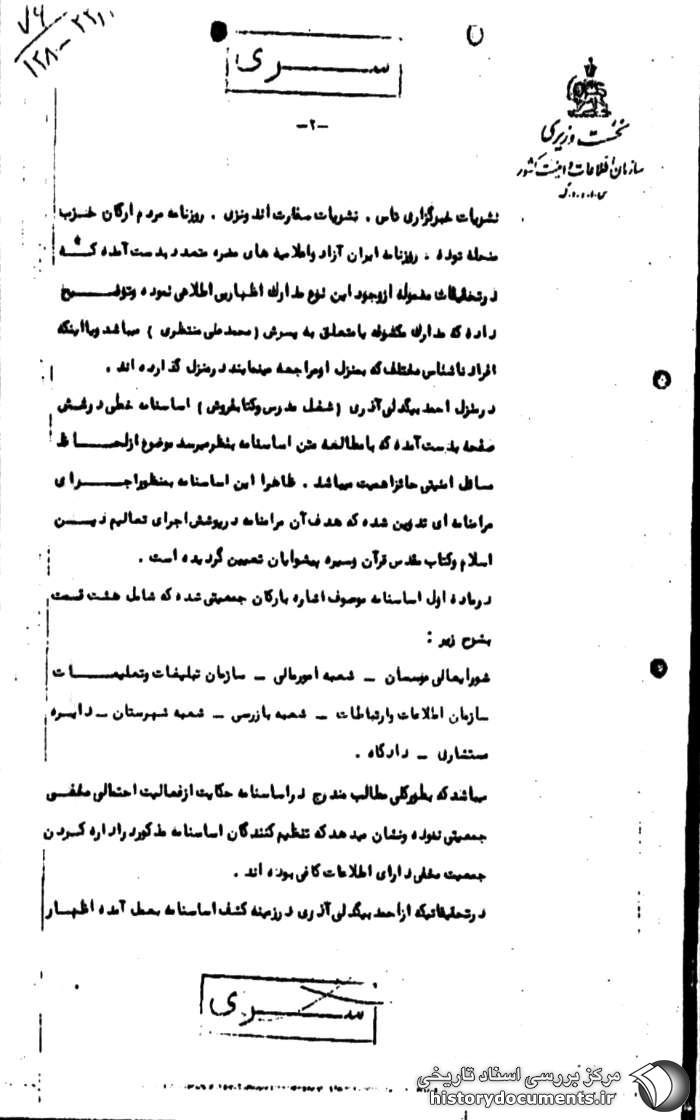 ۷۶
۲۲۱۰
۱۲۸۰
ســـری
-۲-
نخست وزیری
سازمان اطلاعات و امنیت کشور
نشریات خبرگزاری تاس ، نشریات سفارت اندونزی ، روزنامه مردم ارگان حزب
منحله توده ، روزنامه ایران آزاد واعلامیه های مضره متعدد بدست آمده که
درتحقیقات معموله ازوجود این نوع مدارک اظهاربی اطلاعی نموده وتوضیح
داده که مدارک مکشوفه یامتعلق به پسرش (محمدعلی منتظری ) میباشد ویااینکه
افراد ناشناس مختلف که بمنزل اومراجعه مینمایند درمنزل گذارده اند .
درمنزل احمد بیگدلی آذری (شغل مدرس وکتابفروش) اساسنامه خطی درشش
صفحه بدست آمده که بامطالعه متن اساسنامه بنظرمیرسد موضوع ازلحاظ
مسائل امنیتی حائزاهمیت میباشد . ظاهرا این اساسنامه بمنظوراجرای
مرامنامه ای تدوین شده که هدف آن مرامنامه درپوشش اجرای تعالیم دین
اسلام وکتاب مقدس قرآن وسیره پیشوایان تعیین گردیده است .
درماده اول اساسنامه موصوف اشاره بارکان جمعیتی شده که شامل هشت قسمت
بشرح زیر :
شورایعالی موسسان ـ شعبه امورمالی ـ سازمان تبلیغات وتعلیمات
سازمان اطلاعات وارتباطات ـ شعبه بازرسی ـ شعبه شهرستان ـ دایره
مستشاری ـ دادگاه .
میباشد که بطورکلی مطالب مندرج دراساسنامه حکایت ازفعالیت احتمالی مخفی
جمعیتی نموده ونشان میدهد که تنظیم کنندگان اساسنامه مذکور دراداره کردن
جمعیت مخفی دارای اطلاعات کافی بوده اند .
درتحقیقاتیکه ازاحمد بیگدلی آذری درزمینه کشف اساسنامه بعمل آمده اظهار
ســـری
مرکز بررسی اسناد تاریخی
historydocuments.ir